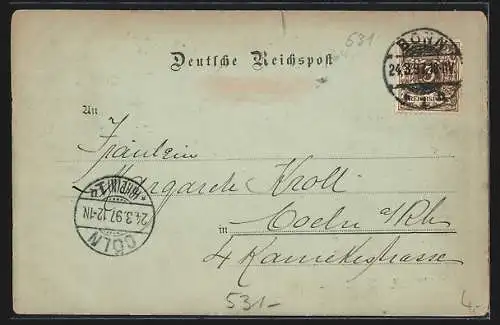 531
Deutsche Reichspost
BONN
24.3.97
An
Fräulein
Margarete Kroll
in Coeln a/Rh
4 Kamekestrasse
CÖLN
24.3.97.12-1N
(RHEIN) 1
531-
4.-